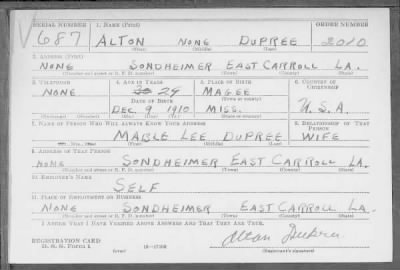 SERIAL NUMBER 1. NAME (Print) ORDER NUMBER
V687 ALTON NONE DUPREE 2010
(First) (Middle) (Last)
2. ADDRESS (Print)
NONE SONDHEIMER EAST CARROLL LA.
(Number and street or R. F. D. number) (Town) (County) (State)
3. TELEPHONE 4. AGE IN YEARS 5. PLACE OF BIRTH 6. COUNTRY OF CITIZENSHIP
NONE 29 MAGEE
DATE OF BIRTH (Town or county)
DEC 9 1910 MISS. U.S.A.
(Exchange) (Number) (Mo.) (Day) (Yr.) (State or country)
7. NAME OF PERSON WHO WILL ALWAYS KNOW YOUR ADDRESS 8. RELATIONSHIP OF THAT PERSON
MABLE LEE DUPREE WIFE
(First) (Middle) (Last)
9. ADDRESS OF THAT PERSON
NONE SONDHEIMER EAST CARROLL LA.
(Number and street or R. F. D. number) (Town) (County) (State)
10. EMPLOYER'S NAME
SELF
11. PLACE OF EMPLOYMENT OR BUSINESS
NONE SONDHEIMER EAST CARROLL LA.
(Number and street or R. F. D. number) (Town) (County) (State)
I AFFIRM THAT I HAVE VERIFIED ABOVE ANSWERS AND THAT THEY ARE TRUE.
REGISTRATION CARD
D. S. S. Form 1 (over) 16-17105 Alton Dupree
(Registrant's signature)